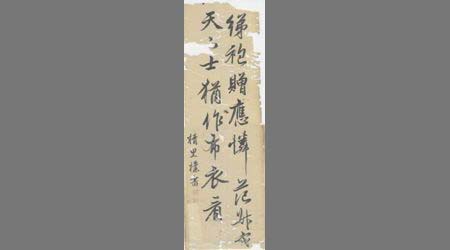 綈袍贈應憐范叔寒
天下士猶作布衣看
精里樸書